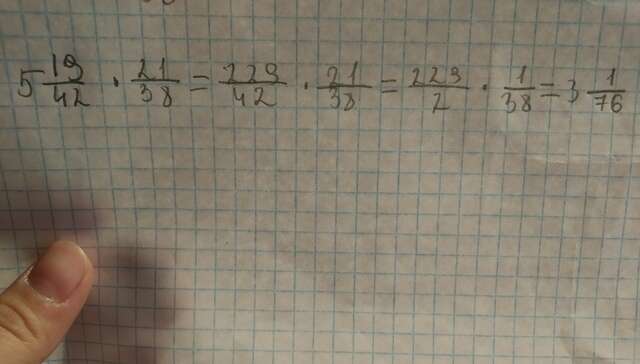 5 19/42 · 21/38 = 229/42 · 21/38 = 229/2 · 1/38 = 3 1/76